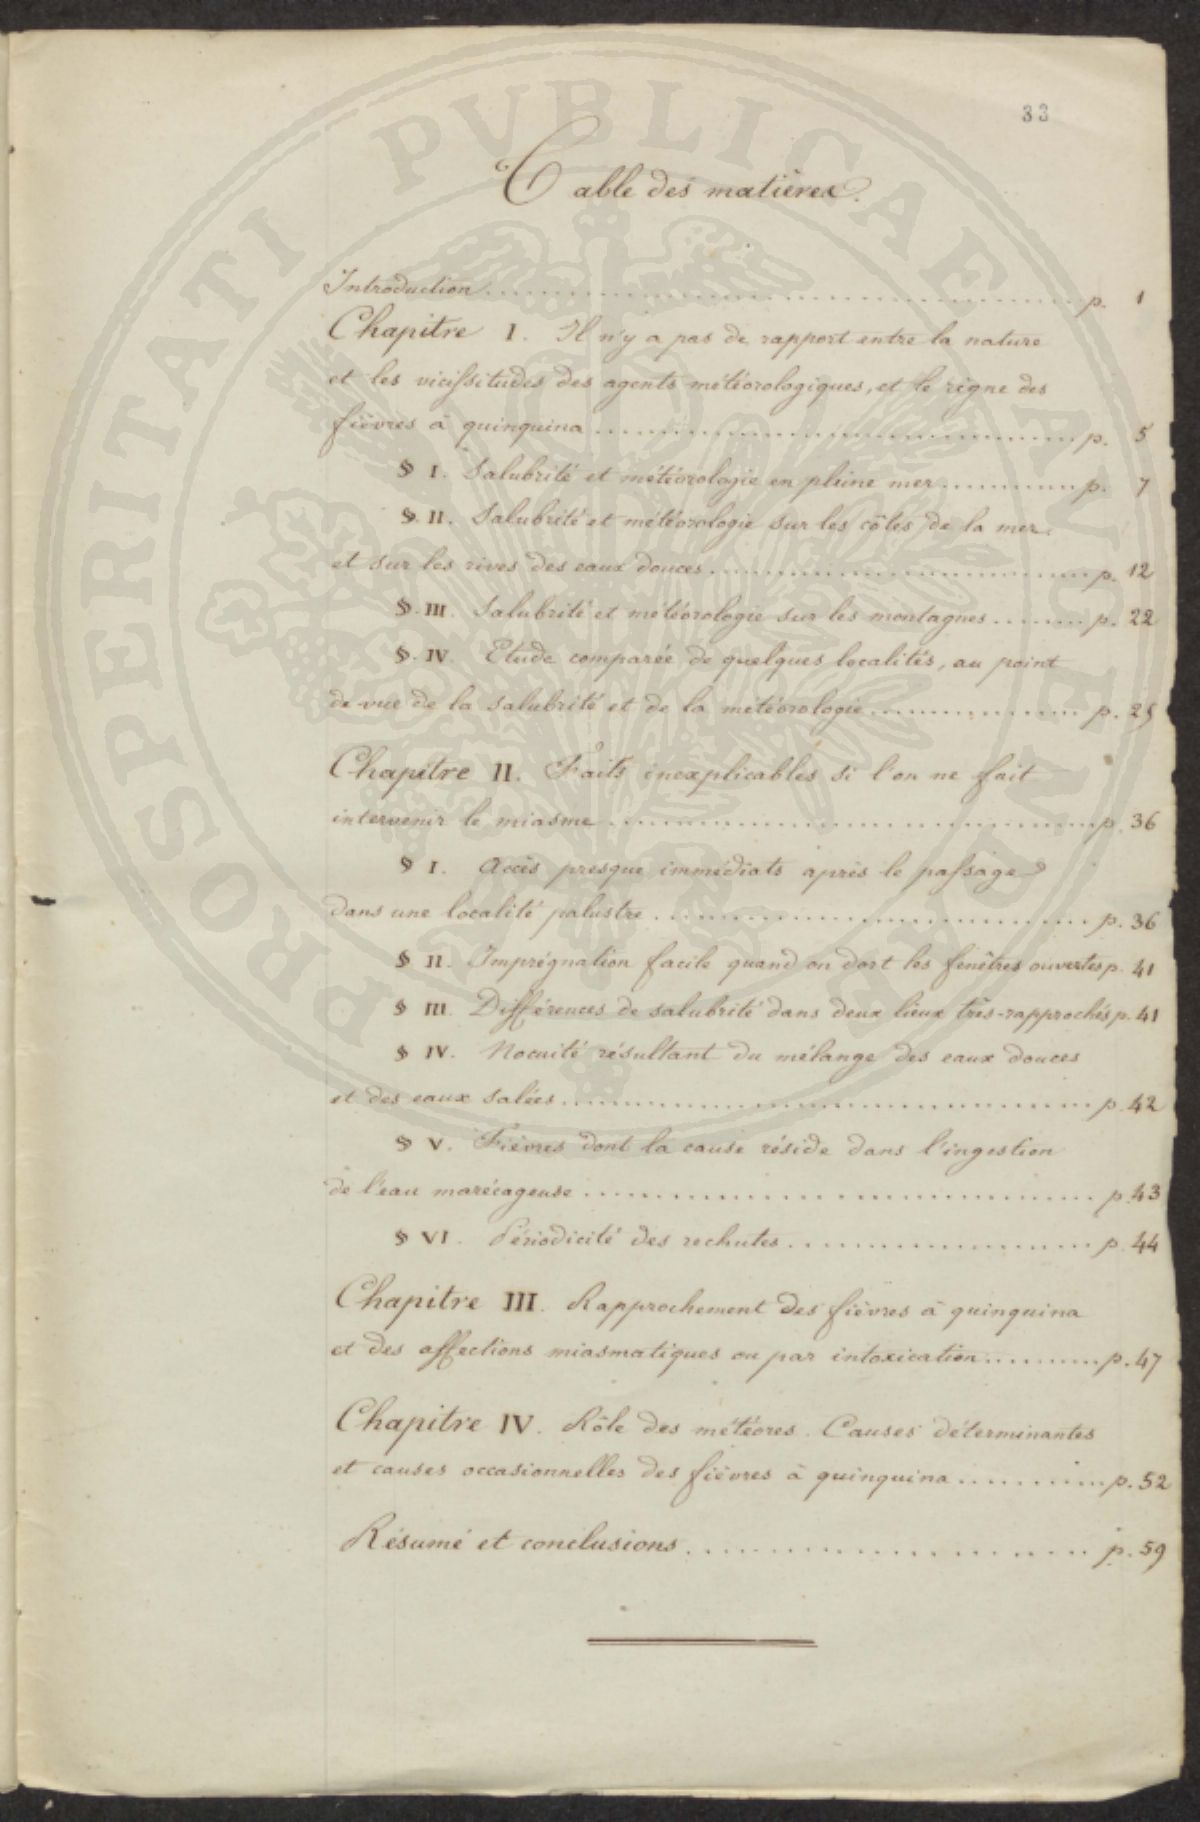 33
Table des matières.
Introduction .......... p. 1
Chapitre I. Il n'y a pas de rapport entre la nature
et les vicissitudes des agents météorologiques, et le règne des
fièvres à quinquina .......... p. 5
§ I. Salubrité et météorologie en pleine mer .......... p. 7
§. II. Salubrité et météorologie sur les côtes de la mer
et sur les rives des eaux douces .......... p. 12
§. III. Salubrité et météorologie sur les montagnes ........ p. 22
§. IV. Etude comparée de quelques localités, au point
de vue de la salubrité et de la météorologie .......... p. 25
Chapitre II. Faits inexplicables si l'on ne fait
intervenir le miasme .......... p. 36
§ I. Accès presque immédiats après le passage
dans une localité palustre .......... p. 36
§ II. Imprégnation facile quand on dort les fenêtres ouvertes p. 41
§ III. Différences de salubrité dans deux lieux très-rapprochés p. 41
§ IV. Nocuité résultant du mélange des eaux douces
et des eaux salées .......... p. 42
§ V. Fièvres dont la cause réside dans l'ingestion
de l'eau marécageuse .......... p. 43
§ VI. Périodicité des rechutes .......... p. 44
Chapitre III. Rapprochement des fièvres à quinquina
et des affections miasmatiques ou par intoxication .......... p. 47
Chapitre IV. Rôle des météores. Causes déterminantes
et causes occasionnelles des fièvres à quinquina .......... p. 52
Résumé et conclusions .......... p. 59
PROSPERITATI PVBLICAE AVGENDAE